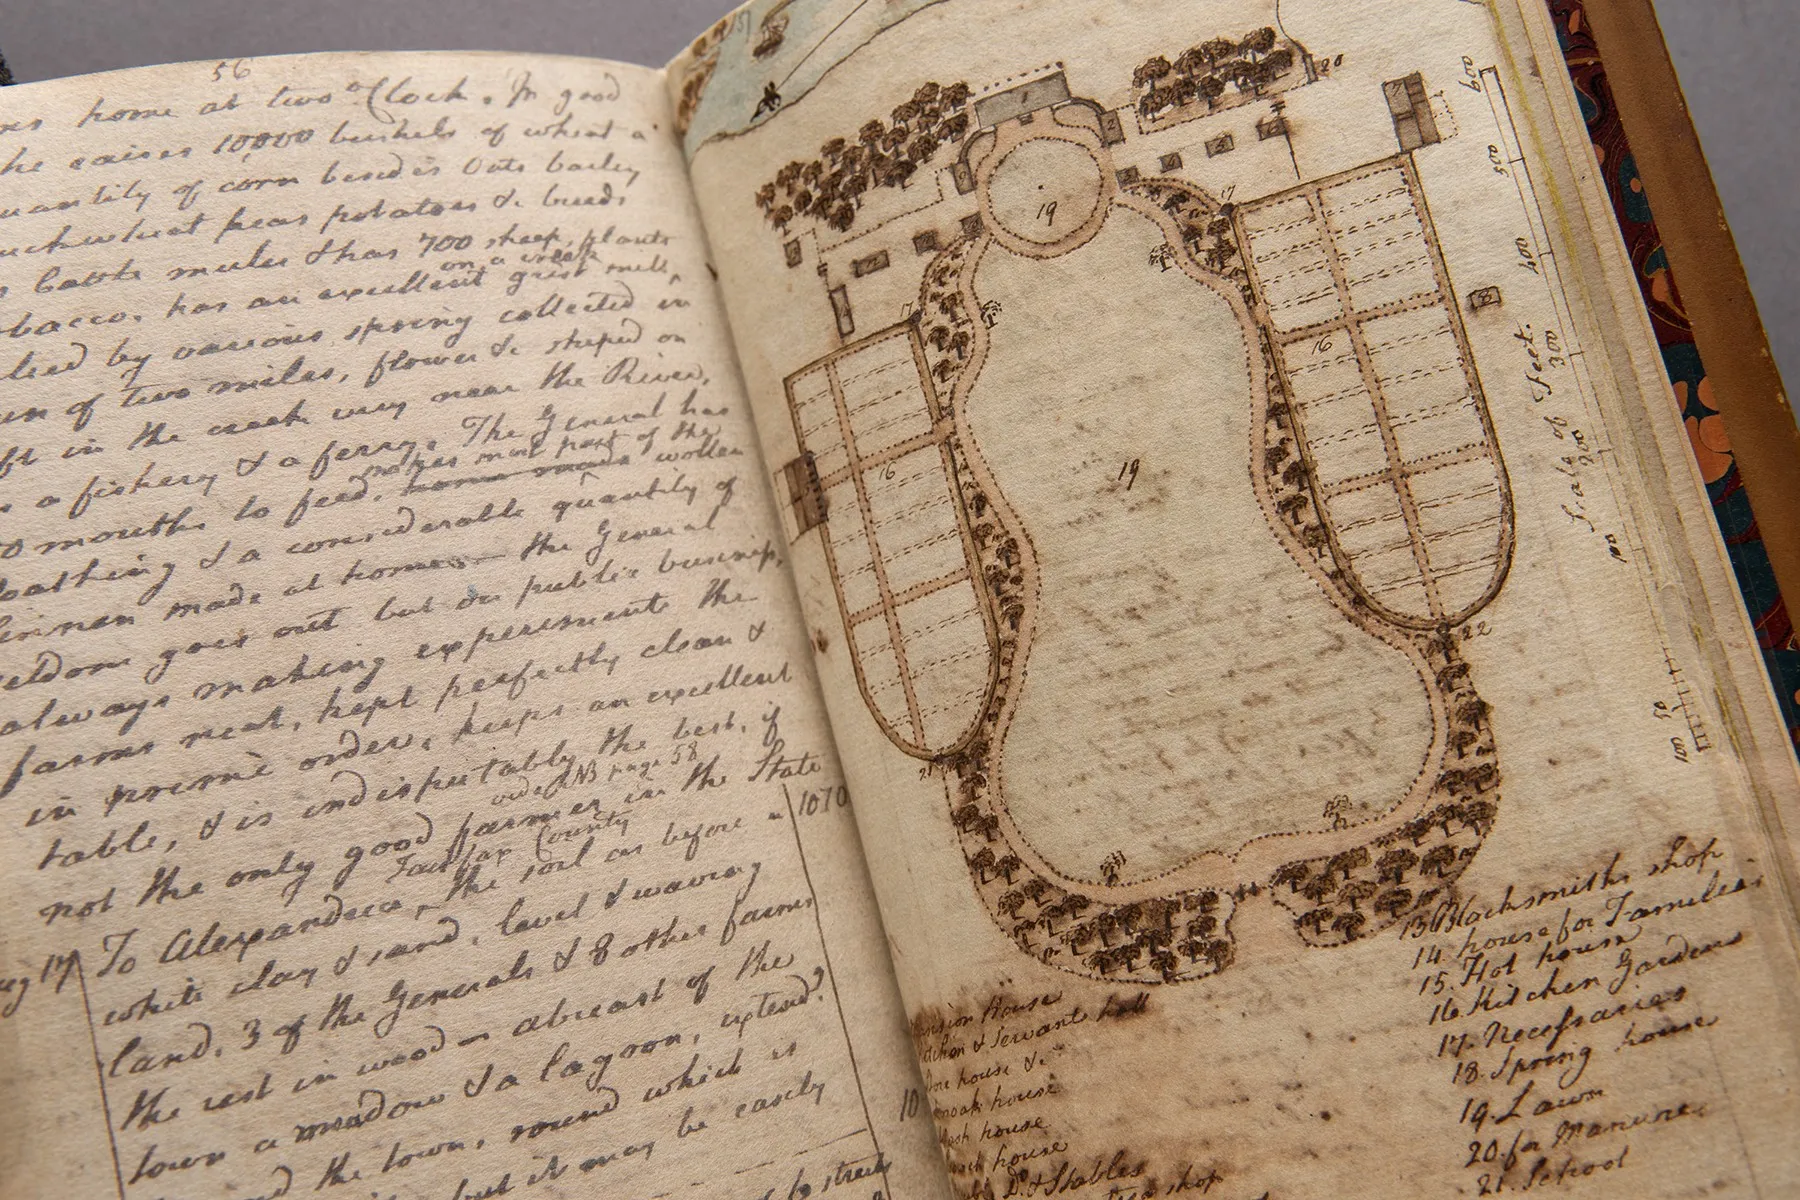 56
home at two oClock. In good
he raises 10,000 bushels of wheat a
quantity of corn besides Oats barley
buckwheat peas potatoes &c breeds
cattle mules & has 700 sheep, plants
on a creek
tobacco, has an excellent grist mill,
by various spring collected in
of two miles, flower &c shiped on
in the creek very near the River,
a fishery & a ferry. The General has
makes most part of the
mouths to feed, wollen
cloathing & a considerable quantity of
linnen made at home — the General
seldom goes out but on public business,
always making experiments the
farms neat, kept perfectly clean &
in prime order, keeps an excellent
table, & is indisputably the best, if
vide NB page 58
not the only good farmer in the State
Fairfax County
17 To Alexandria, the soil as before a 1070
white clay & sand, level & waving
land, 3 of the Generals & 8 other farms
the rest in wood — abreast of the
town a meadow & a lagoon, extend.
the town, round which is
but it may be easily
streets
1
2
19
20
7
17
17
8
16
16
19
21
22
600
500
400
300
200
100
50
100
Scale of Feet.
Mansion House
Kitchen & Servants hall
Store house &c
Smoak house
Wash house
house
Do. & Stables
shop
13 Blacksmiths shop
14. house for Families
15. Hot house
16. Kitchen Gardens
17. Necessaries
18. Spring house
19. Lawn
20. for Manure
21. School